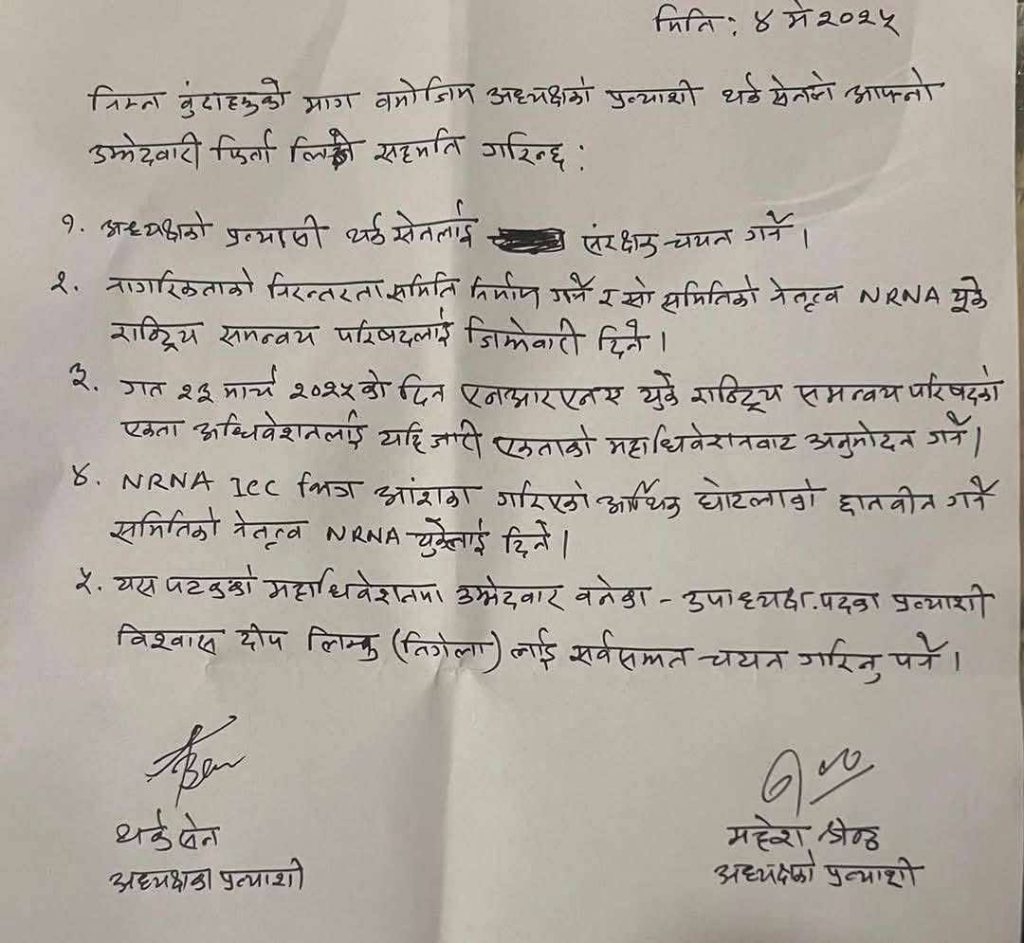 मिति: ४ मे २०२५
निम्न बुंदाहरुको माग बमोजिम अध्यक्षको प्रत्याशी थर्क सेनले आफ्नो
उम्मेदवारी फिर्ता लिने सहमति गरिन्छ:
१. अध्यक्षको प्रत्याशी थर्क सेनलाई संरक्षक चयन गर्ने।
२. नागरिकताको निरन्तरता समिति निर्माण गर्ने र सो समितिको नेतृत्व NRNA यूके
राष्ट्रिय समन्वय परिषदलाई जिम्मेवारी दिने।
३. गत २३ मार्च २०२५ को दिन एनआरएनए युके राष्ट्रिय समन्वय परिषदको
एकता अधिवेशनलाई यहि जारी एकताको महाधिवेशनबाट अनुमोदन गर्ने।
४. NRNA ICC भित्र आंशका गरिएको आर्थिक घोटलाको छानबीन गर्ने
समितिको नेतृत्व NRNA युकेलाई दिने।
५. यस पटकको महाधिवेशनमा उम्मेदवार बनेका - उपाध्यक्ष पदका प्रत्याशी
विश्वास दीप लिम्बु (तिगेला) लाई सर्वसम्मत चयन गरिनु पर्ने।
थर्क सेन
अध्यक्षका प्रत्याशी
महेश श्रेष्ठ
अध्यक्षको प्रत्याशी